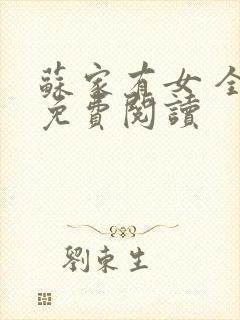 蘇家有女全
免費閱讀
劉東生